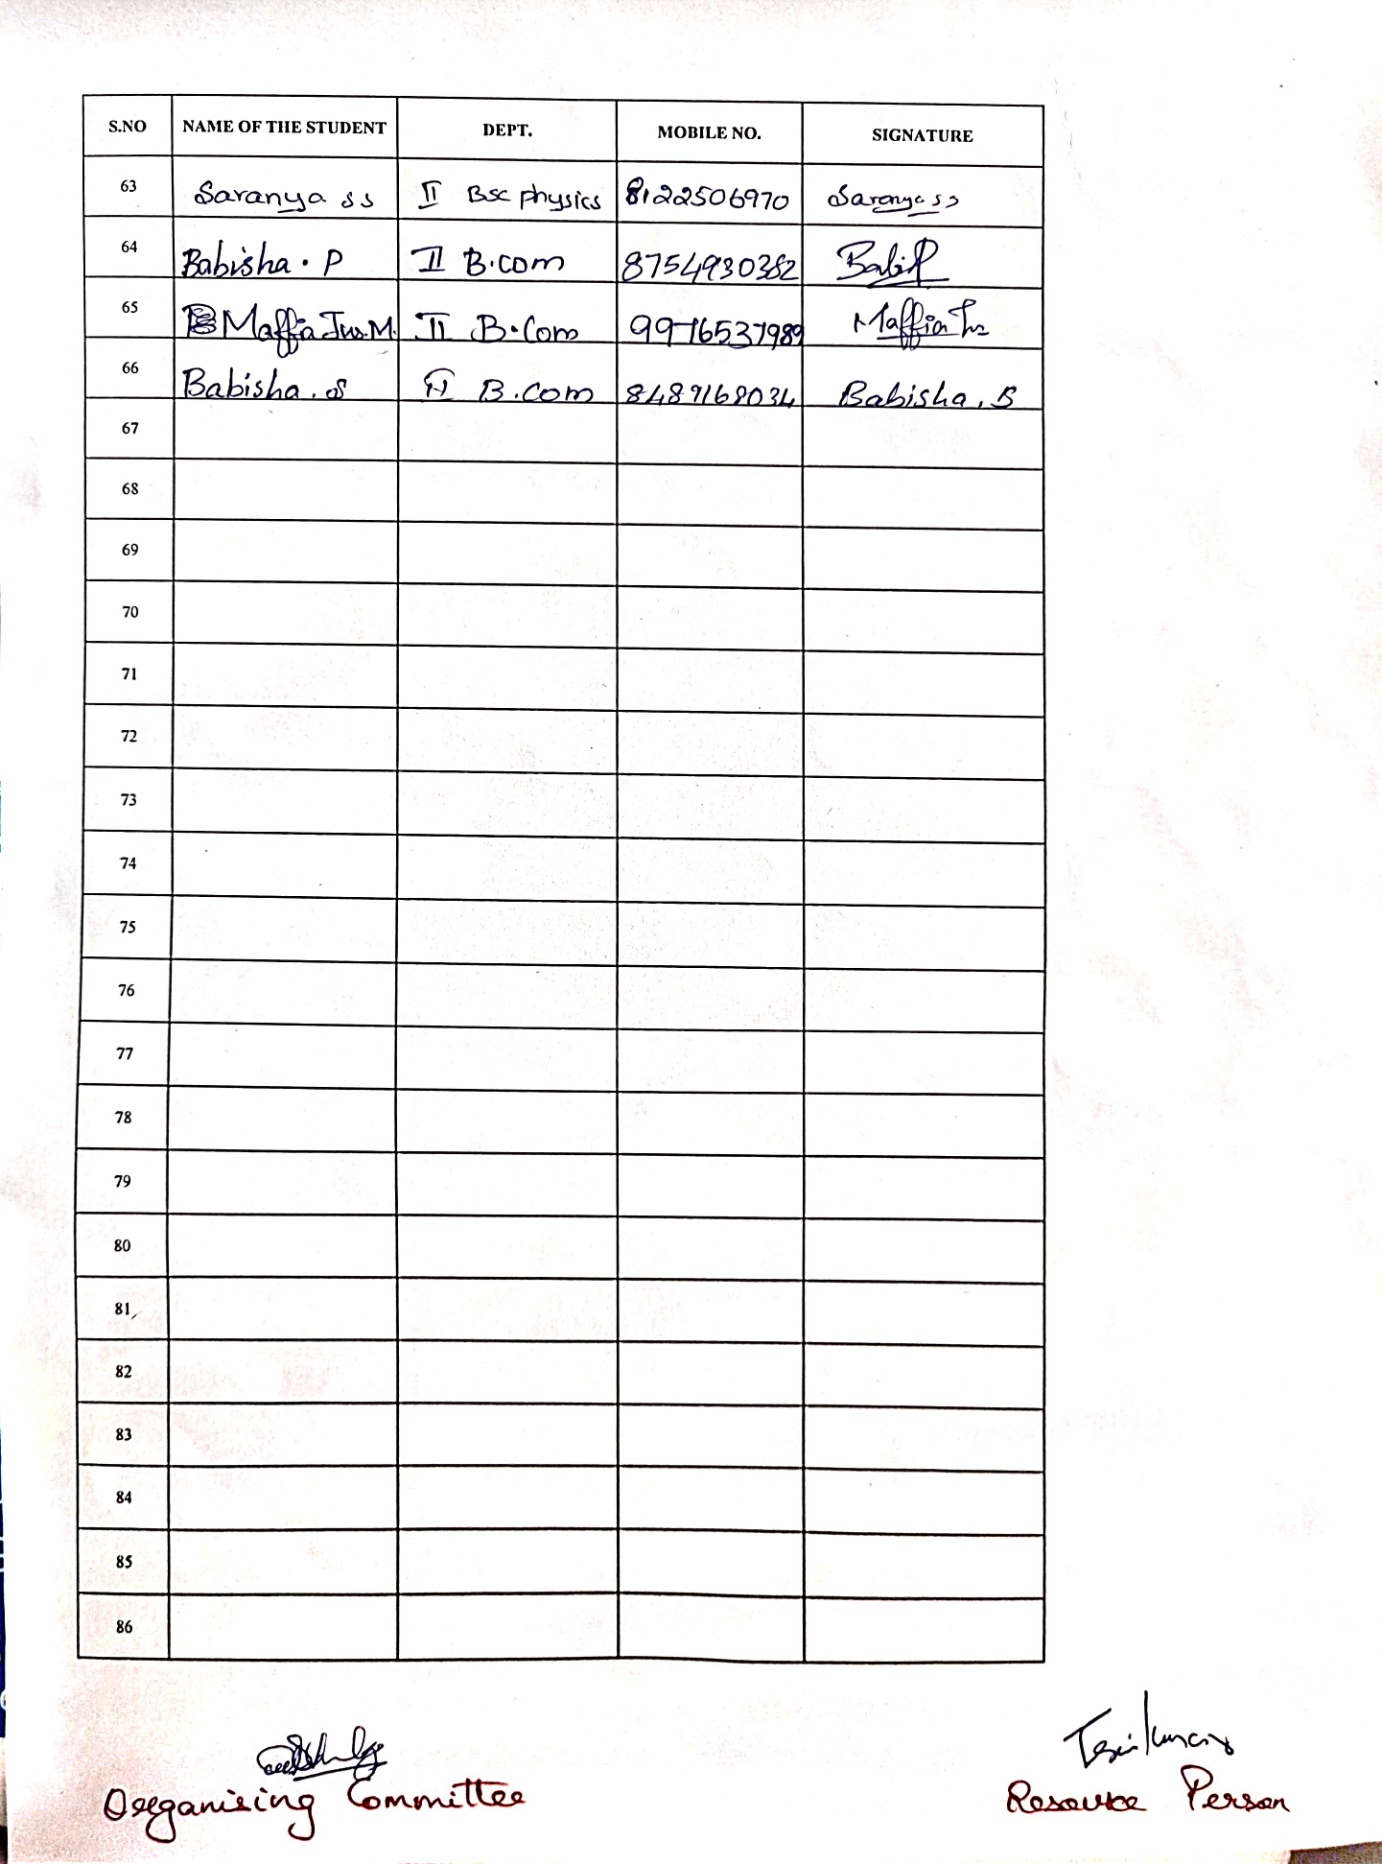 S.NO NAME OF THE STUDENT DEPT. MOBILE NO. SIGNATURE
63 Saranya SS II BSc physics 8122506970 Saranya SS
64 Babisha . P II B.com 8754930382 Babi P
65 Maffia Jus.M. II B.Com 9976537989 Maffia
66 Babisha . S II B.com 8489168034 Babisha . S
67
68
69
70
71
72
73
74
75
76
77
78
79
80
81
82
83
84
85
86
Organising Committee Resource Person